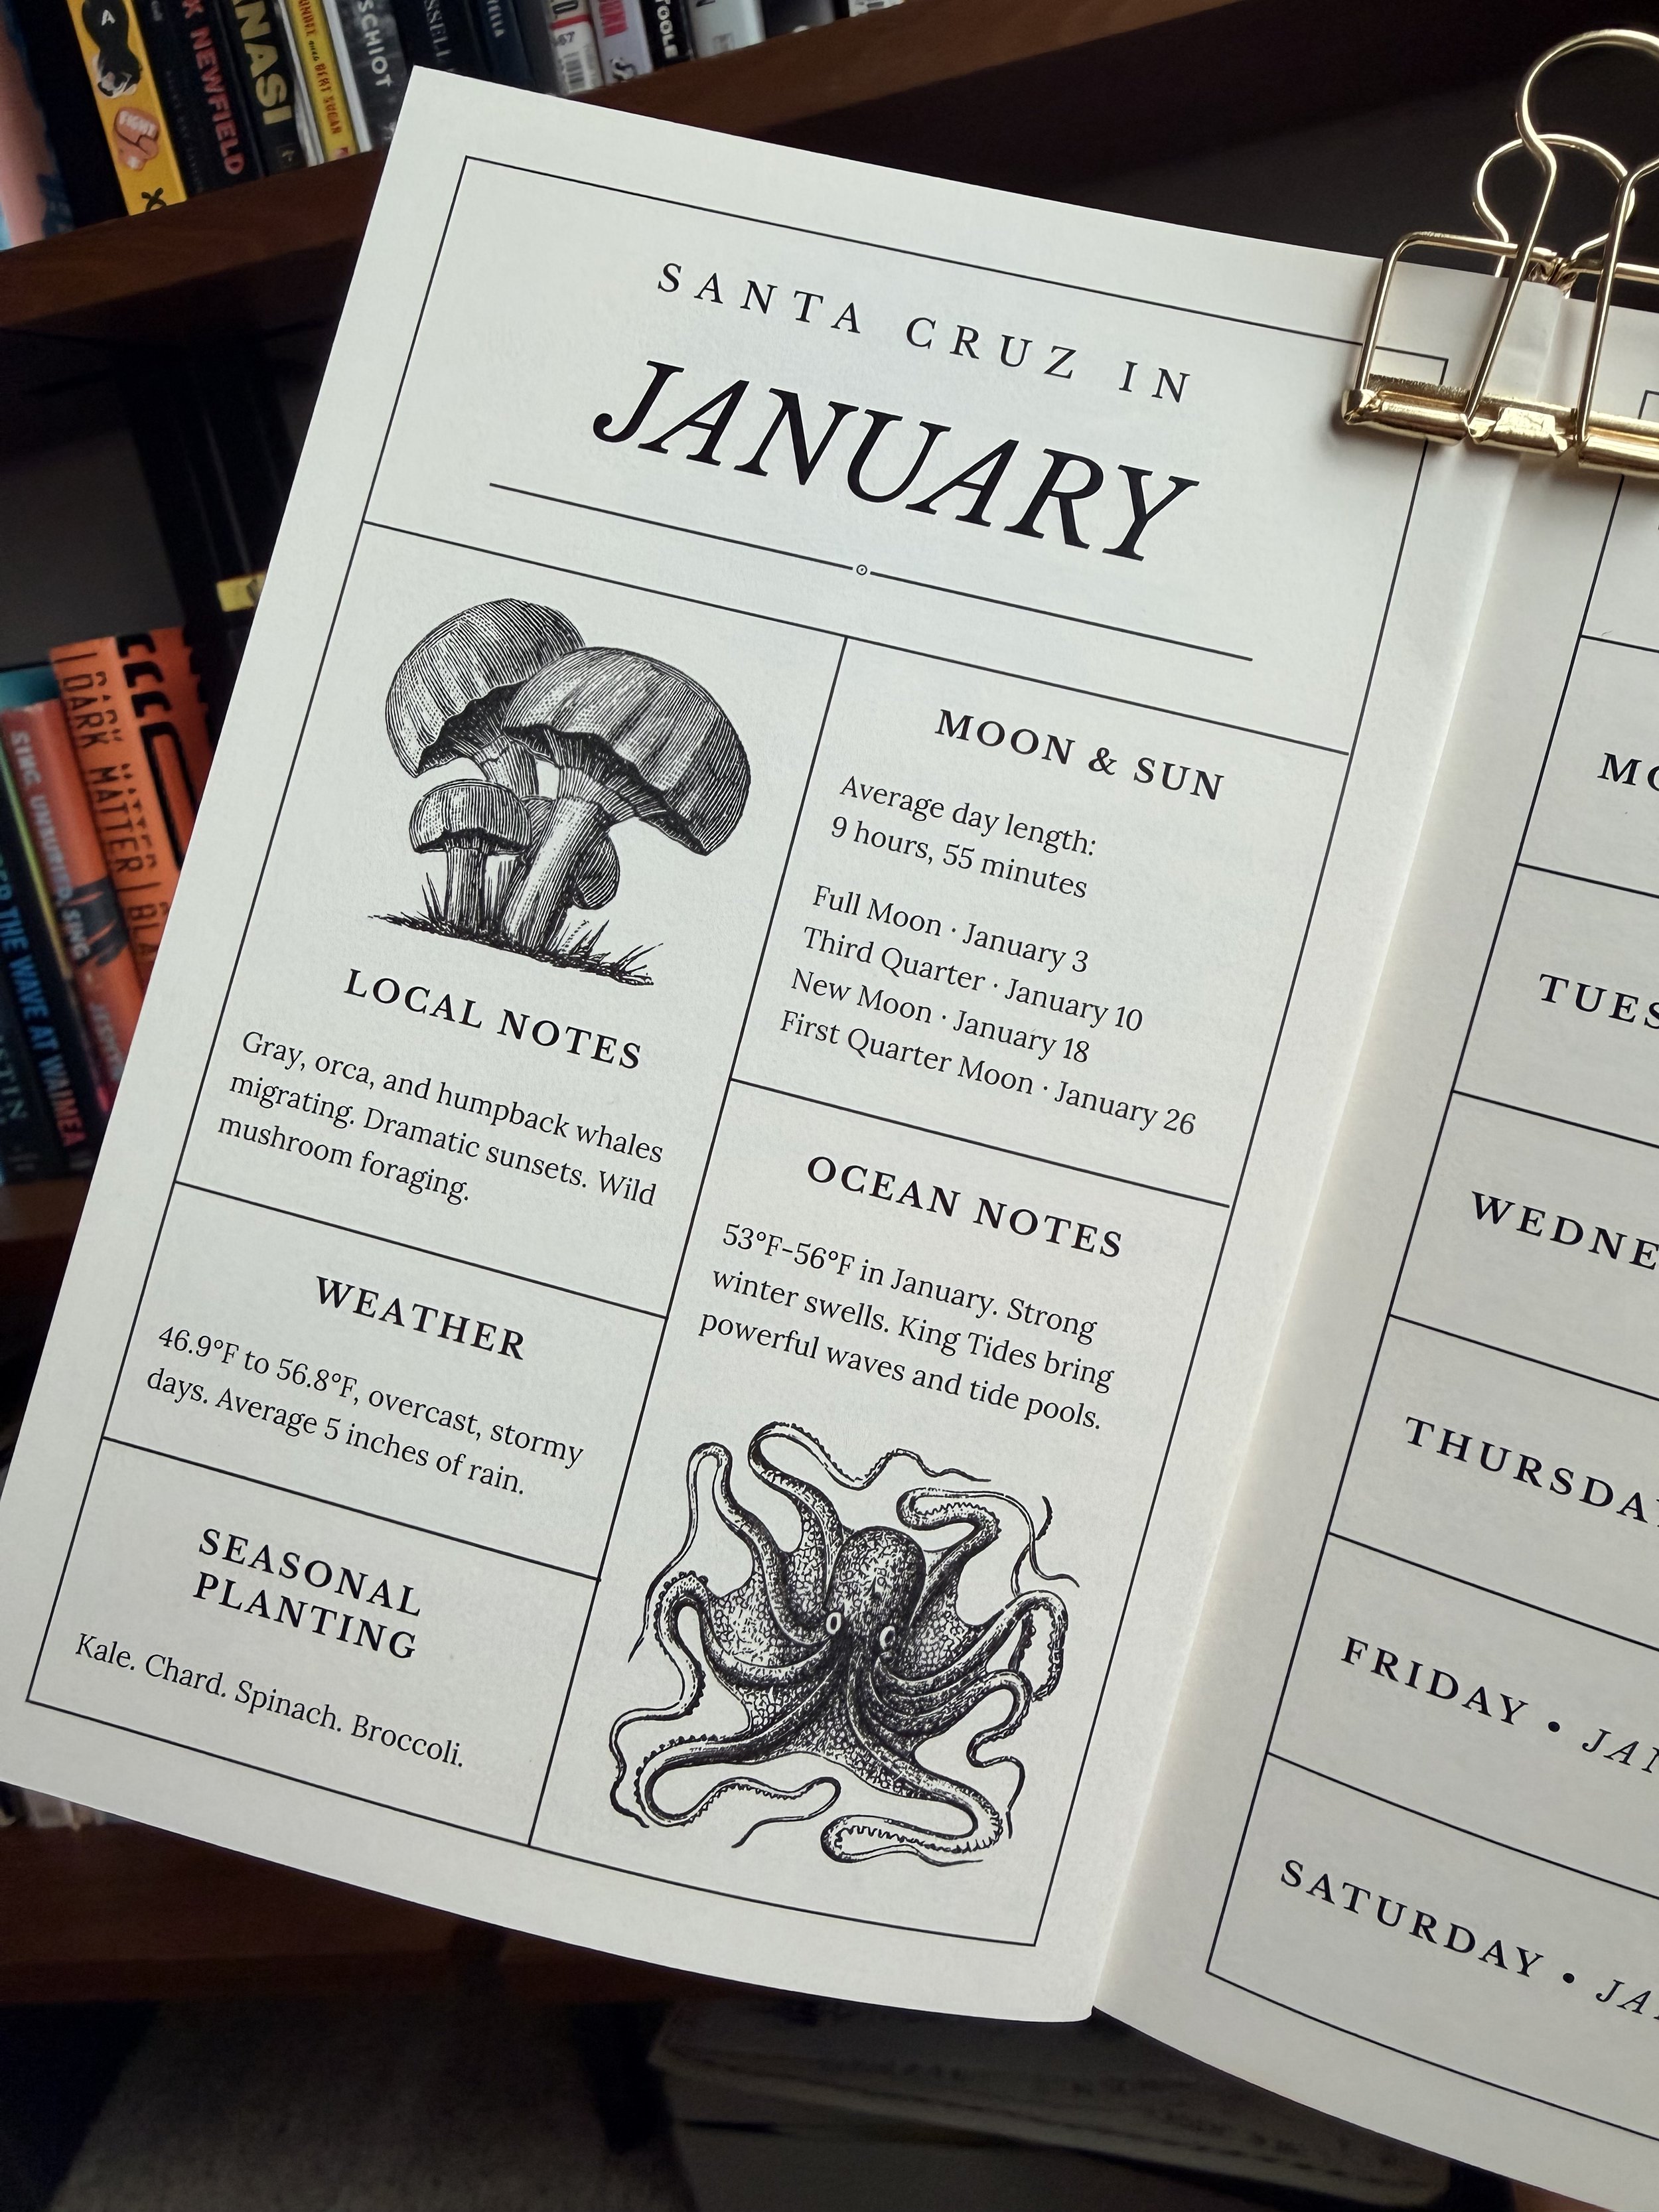 A
FIGHT
K NEWFIELD
NASI
BERT SUGAR
SCHIOT
SSELL
ELLA
TOOLE
SANTA CRUZ IN
JANUARY
LOCAL NOTES
Gray, orca, and humpback whales
migrating. Dramatic sunsets. Wild
mushroom foraging.
WEATHER
46.9°F to 56.8°F, overcast, stormy
days. Average 5 inches of rain.
SEASONAL
PLANTING
Kale. Chard. Spinach. Broccoli.
MOON & SUN
Average day length:
9 hours, 55 minutes
Full Moon · January 3
Third Quarter · January 10
New Moon · January 18
First Quarter Moon · January 26
OCEAN NOTES
53°F-56°F in January. Strong
winter swells. King Tides bring
powerful waves and tide pools.
MO
TUES
WEDNE
THURSDAY
FRIDAY • JAN
SATURDAY • JA
DARK MATTER
SING, UNBURIED, SING
THE WAVE AT WAIMEA